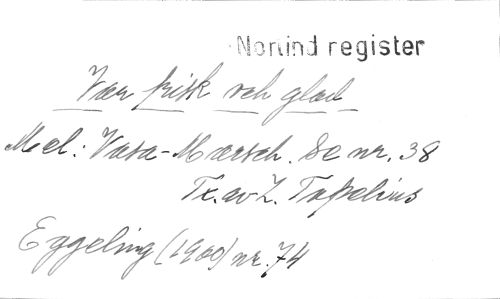 Norlind register
Var frisk och glad
Mel: Vasa-Marsch. Se nr. 38
Tx. av Z. Topelius
Eggeling (1900) nr. 74